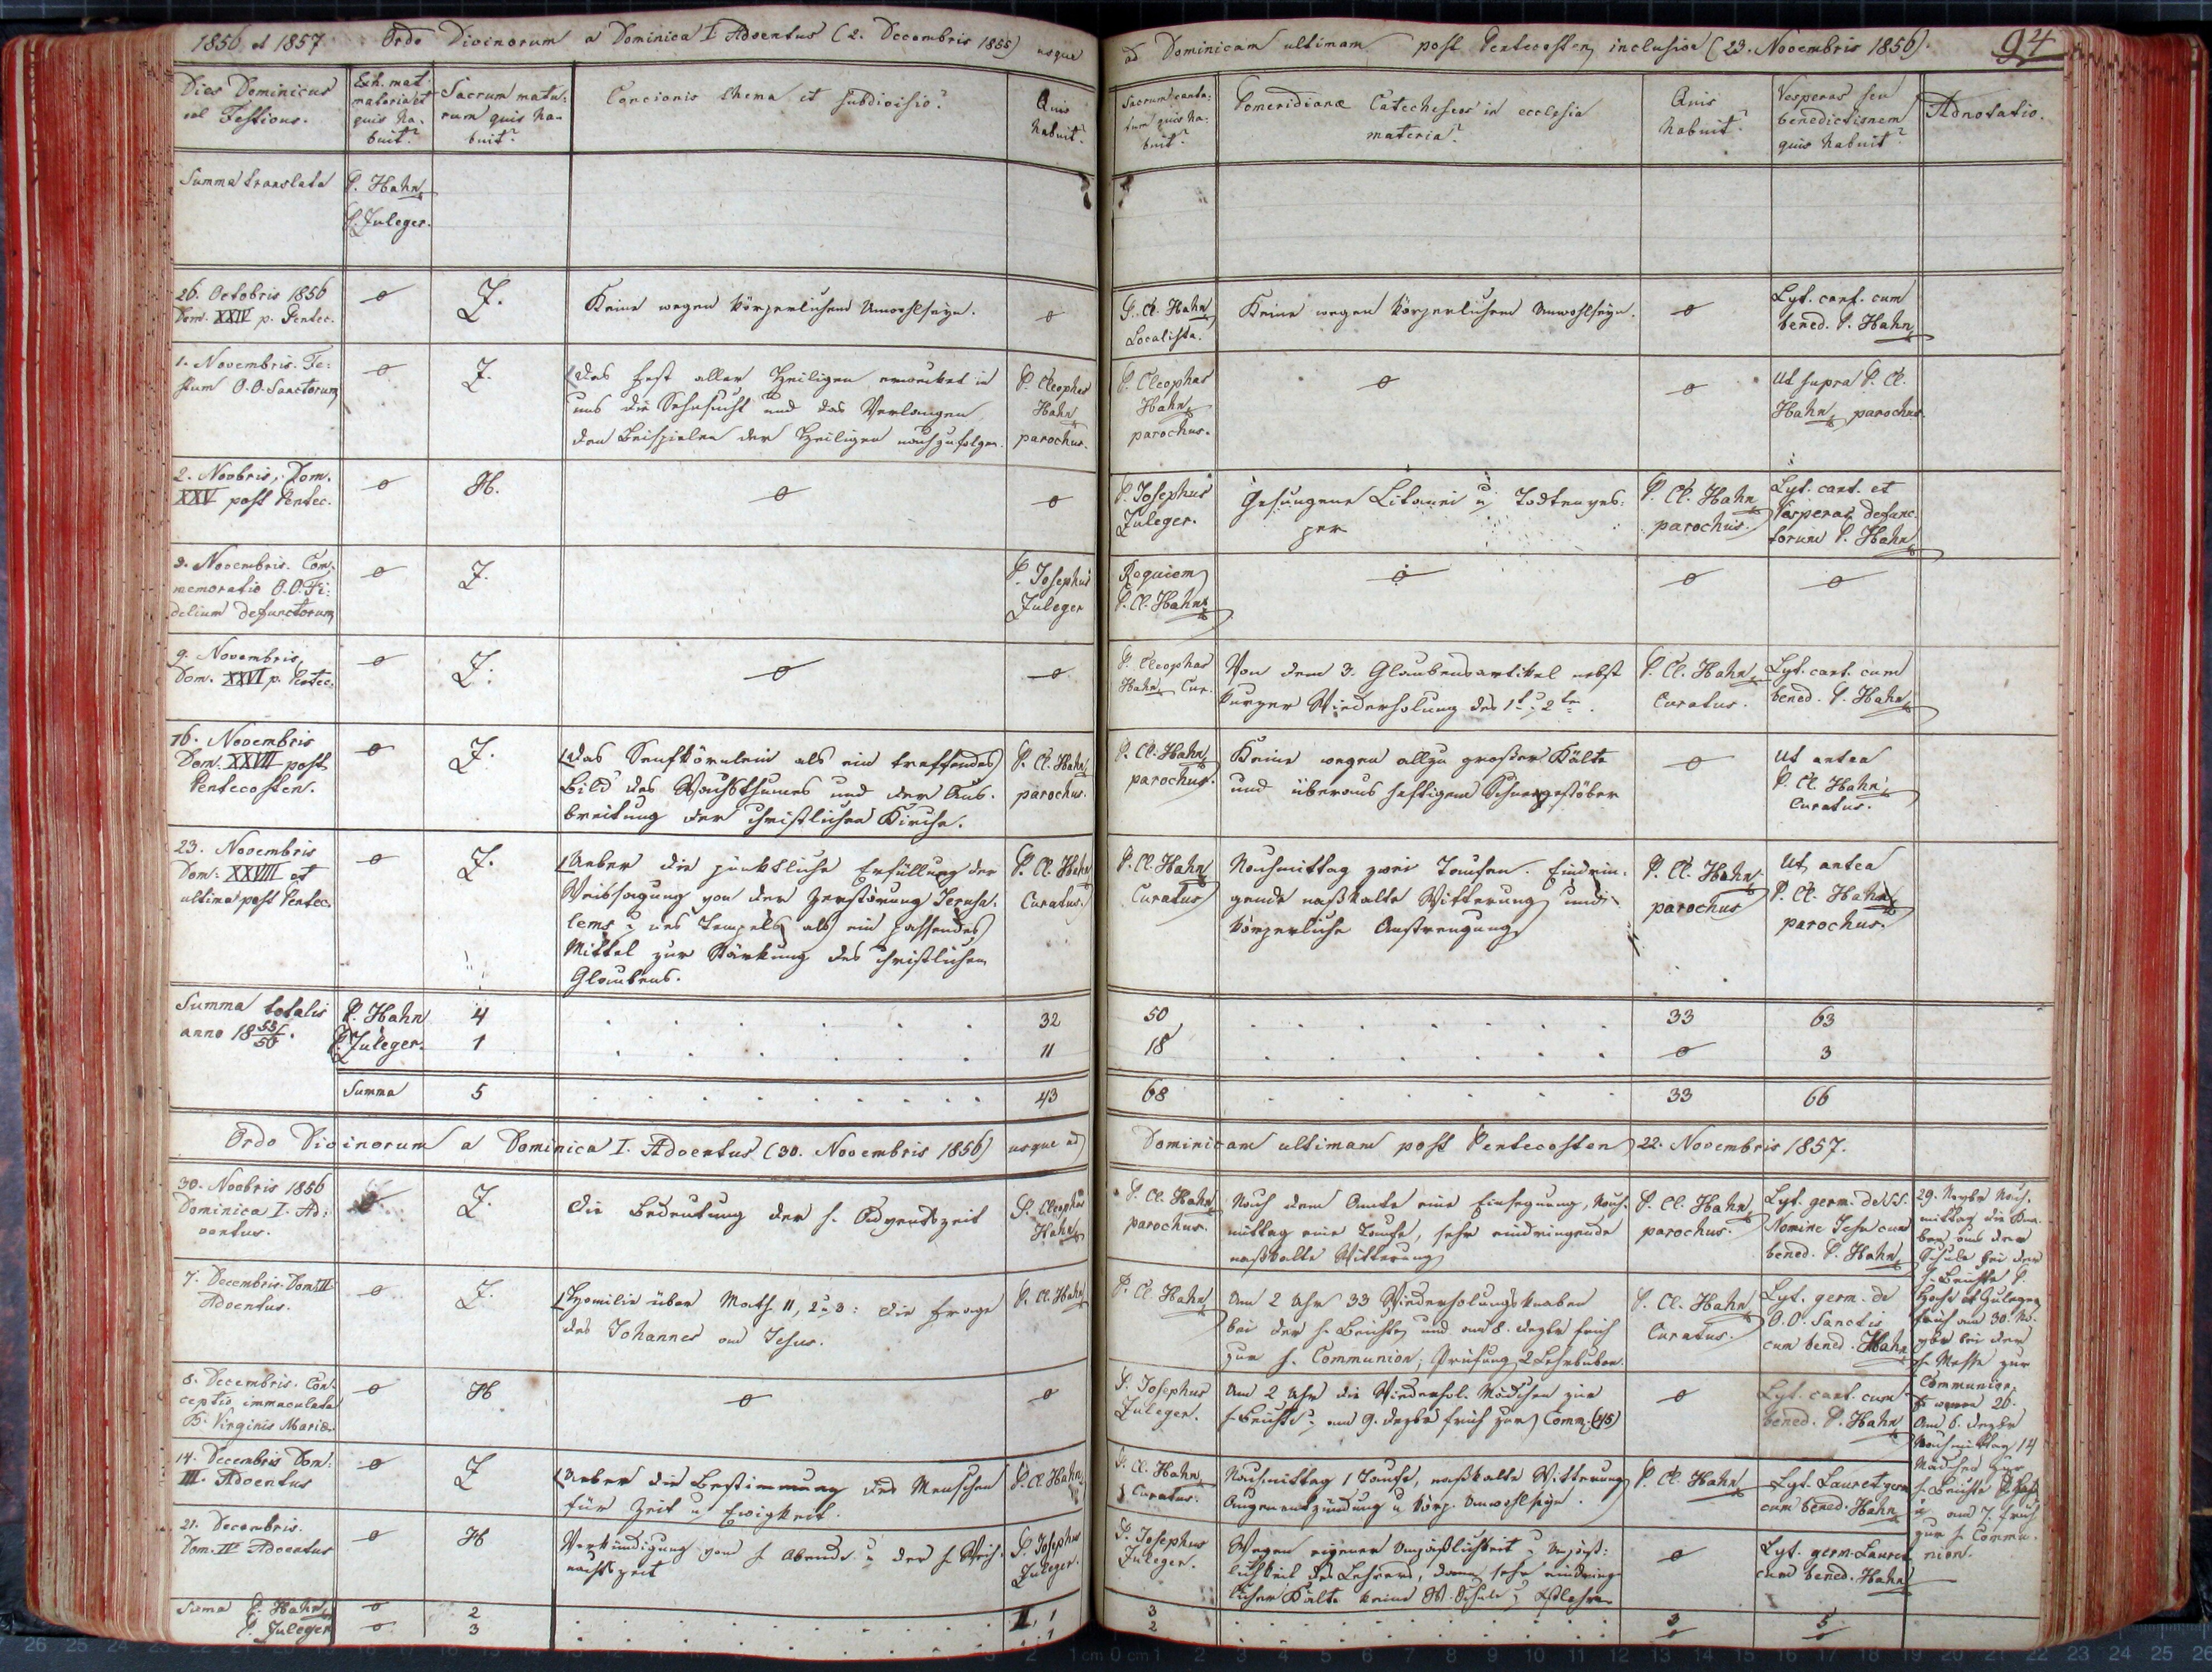 1856 et 1857. Ordo Divinorum a Dominica I. Adventus (2. Decembris 1855) usque
ad Dominicam ultimam post Pentecosten inclusive (23. Novembris 1856).
94
Dies Dominicus
vel Festivus.
Exh. mat.
materia et
quis ha-
buit?
Sacrum matu-
rum quis ha-
buit?
Concionis thema et subdivisio?
Quis
habuit?
Sacrum canta-
tum quis ha-
buit?
Pomeridianæ Catecheseos in ecclesia
materia?
Quis
habuit?
Vesperas seu
benedictionem
quis habuit?
Adnotatio.
Summa translata
P. Hahn
P. Juleger.
26. Octobris 1856
Dom. XXIV p. Pentec.
J.
Keine wegen körperlichem Unwohlseyn.
P. Cl. Hahn
Localista.
Keine wegen körperlichem Unwohlseyn.
Lyt. cant. cum
bened. P. Hahn
1. Novembris. Fe-
stum O.O. Sanctorum
J.
Das Fest aller Heiligen erwecket in
uns die Sehnsucht und das Verlangen
den Beispielen der Heiligen nachzufolgen.
P. Cleophas
Hahn
parochus.
P. Cleophas
Hahn
parochus.
Ut supra P. Cl.
Hahn parochus.
2. Novbris, Dom.
XXV post Pentec.
H.
P. Josephus
Juleger.
Gesungene Litanei u. Todtenves-
per
P. Cl. Hahn
parochus.
Lyt. cant. et
Vesperas defunc-
torum P. Hahn
3. Novembris. Com-
memoratio O.O. Fi-
delium defunctorum
J.
P. Josephus
Juleger
Requiem
P. Cl. Hahn
9. Novembris
Dom. XXVI p. Pentec.
J.
P. Cleophas
Hahn Cur.
Von dem 3. Glaubensartikel nebst
kurzer Wiederholung des 1t. u. 2ten.
P. Cl. Hahn
Curatus.
Lyt. cant. cum
bened. P. Hahn
16. Novembris
Dom. XXVII post
Pentecosten.
J.
Das Senfkörnlein als ein treffendes
Bild des Wachsthumes und der Aus-
breitung der christlichen Kirche.
P. Cl. Hahn
parochus.
P. Cl. Hahn
parochus.
Keine wegen allzu großer Kälte
und überaus heftigem Schneegestöber
Ut antea
P. Cl. Hahn
Curatus.
23. Novembris
Dom. XXVIII et
ultima post Pentec.
J.
Ueber die pünktliche Erfüllung der
Weissagung von der Zerstörung Jerusa-
lems u. des Tempels als ein passendes
Mittel zur Stärkung des christlichen
Glaubens.
P. Cl. Hahn
Curatus.
P. Cl. Hahn
Curatus
Nachmittag zwei Taufen. Eindrin-
gende naßkalte Witterung und
körperliche Anstrengung
P. Cl. Hahn
parochus
Ut antea
P. Cl. Hahn
parochus.
Summa totalis
anno 18 55/56.
P. Hahn 4 32 50 33 63
P. Juleger. 1 11 18 3
Summa 5 43 68 33 66
Ordo Divinorum a Dominica I. Adventus (30. Novembris 1856) usque ad
Dominicam ultimam post Pentecosten 22. Novembris 1857.
30. Novbris 1856
Dominica I. Ad-
ventus.
J.
Die Bedeutung der h. Adventszeit
P. Cleophas
Hahn
P. Cl. Hahn
parochus.
Nach dem Amte eine Einsegnung, Nach-
mittag eine Taufe, sehr eindringende
naßkalte Witterung
P. Cl. Hahn
parochus.
Lyt. germ. de SS.
Nomine Jesu cum
bened. P. Hahn
7. Decembris. Dom. II
Adventus.
J.
Homilie über Math. 11, 2 u. 3: die Frage
des Johannes an Jesus.
P. Cl. Hahn
P. Cl. Hahn
Um 2 Uhr 33 Wiederholungsknaben
bei der h. Beichte und am 8. Dezbr früh
zur h. Communion; Prüfung 2 Lehrbuben.
P. Cl. Hahn
Curatus.
Lyt. germ. de
O.O. Sanctis
cum bened. Hahn
8. Decembris. Con-
ceptio immaculata
B. Virginis Mariæ
H
P. Josephus
Juleger.
Um 2 Uhr die Wiederhol. Mädchen zur
h. Beichte u. am 9. Dezbr früh zur Comm. (45)
Lyt. cant. cum
bened. P. Hahn
14. Decembris Dom.
III. Adventus
J
Ueber die Bestimmung des Menschen
für Zeit u. Ewigkeit.
P. Cl. Hahn
P. Cl. Hahn
Curatus.
Nachmittag 1 Taufe, naßkalte Witterung
Augenentzündung u. körp. Unwohlseyn.
P. Cl. Hahn
Lyt. Lauret. germ.
cum bened. Hahn
21. Decembris.
Dom. IV Adventus
H
Verkündigung vom h. Abende u. der h. Weih-
nachtszeit
P. Josephus
Juleger.
P. Josephus
Juleger.
Wegen eigener Unpäßlichkeit u. Unpäß-
lichkeit des Lehrers, dann sehr eindring-
licher Kälte keine W. Schule u.
Lyt. germ. Lauret.
cum bened. Hahn
29. Novbr Nach-
mittag die Kna-
ben aus der
Schule bei der
h. Beichte P.
Hahn et Juleger
früh am 30. No-
vbr bei der
h. Messe zur
Communion.
waren 26.
Am 6. Dezbr
Nachmittag 14
Mädchen zur
h. Beichte
u. am 7. früh
zur h. Commu-
nion.
Suma P. Hahn 2 1 3 3 5
P. Juleger 3 1 2